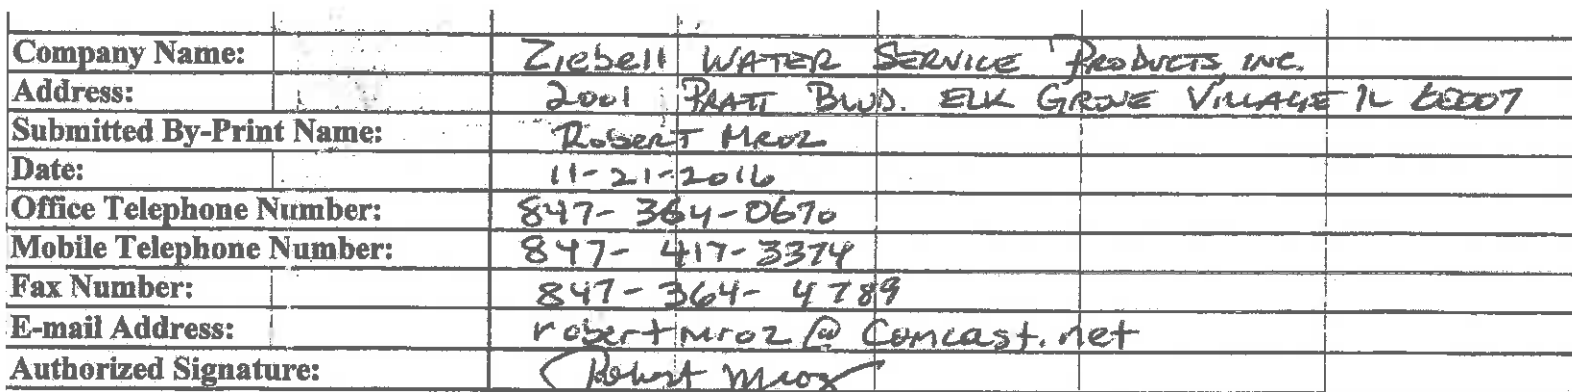 Company Name: Ziebell WATER SERVICE PRODUCTS INC.
Address: 2001 PRATT BLVD. ELK GROVE VILLAGE IL 60007
Submitted By-Print Name: Robert Mroz
Date: 11-21-2016
Office Telephone Number: 847-364-0670
Mobile Telephone Number: 847-417-3374
Fax Number: 847-364-4789
E-mail Address: robertmroz@comcast.net
Authorized Signature: Robert Mroz